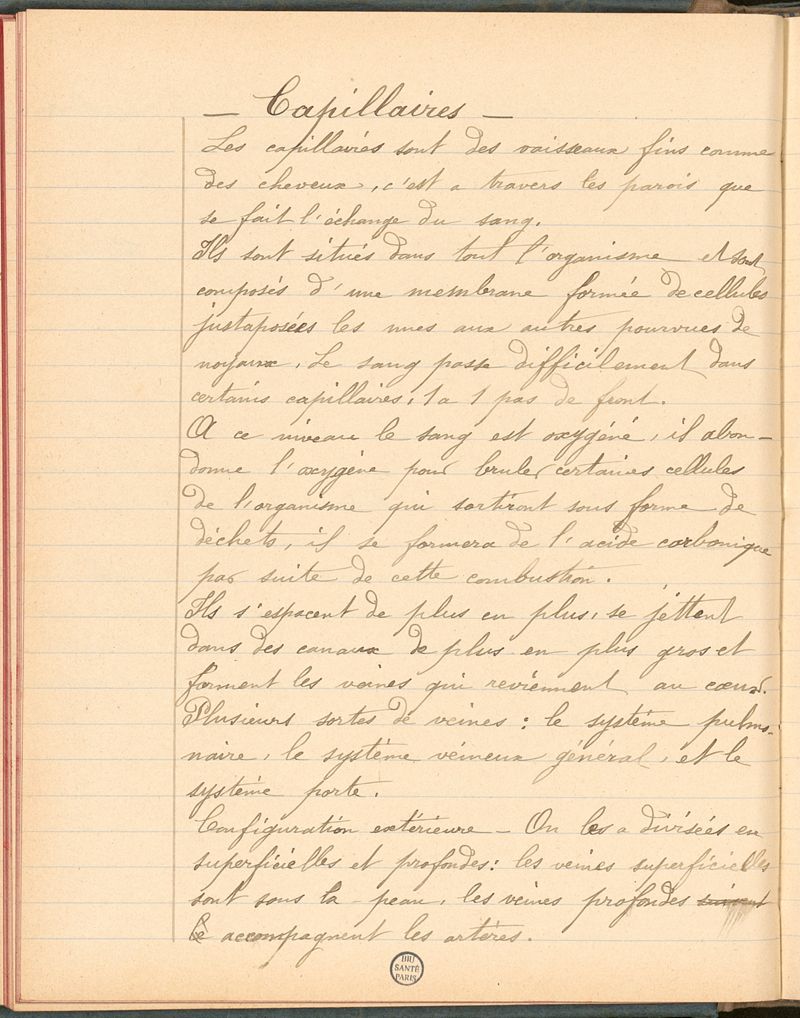 — Capillaires —
Les capillaires sont des vaisseaux fins comme
des cheveux, c'est a travers les parois que
se fait l'échange du sang.
Ils sont situés dans tout l'organisme et sont
composés d'une membrane formée de cellules
justaposées les unes aux autres pourvues de
noyaux. Le sang passe difficilement dans
certains capillaires, 1 a 1 pas de front.
A ce niveau le sang est oxygéné, il abon-
donne l'oxygène pour bruler certaines cellules
de l'organisme qui sortiront sous forme de
déchets, il se formera de l'acide carbonique
par suite de cette combustion.
Ils s'espacent de plus en plus, se jettent
dans des canaux de plus en plus gros et
forment les veines qui reviennent au cœur.
Plusieurs sortes de veines : le système pulmo-
naire, le système veineux général, et le
système porte.
Configuration extérieure — On les a divisées en
superficielles et profondes : les veines superficielles
sont sous la peau, les veines profondes suivent
accompagnent les artères.
BIU
SANTÉ
PARIS